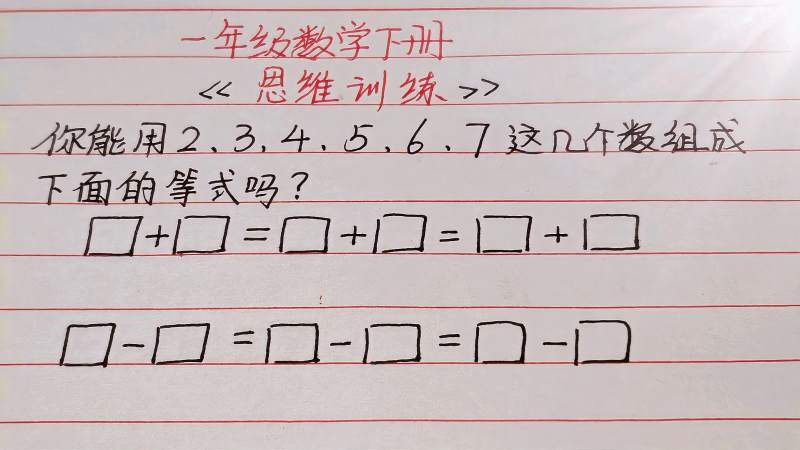 一年级数学下册
《思维训练》
你能用2、3、4、5、6、7这几个数组成
下面的等式吗？
□+□=□+□=□+□
□-□=□-□=□-□